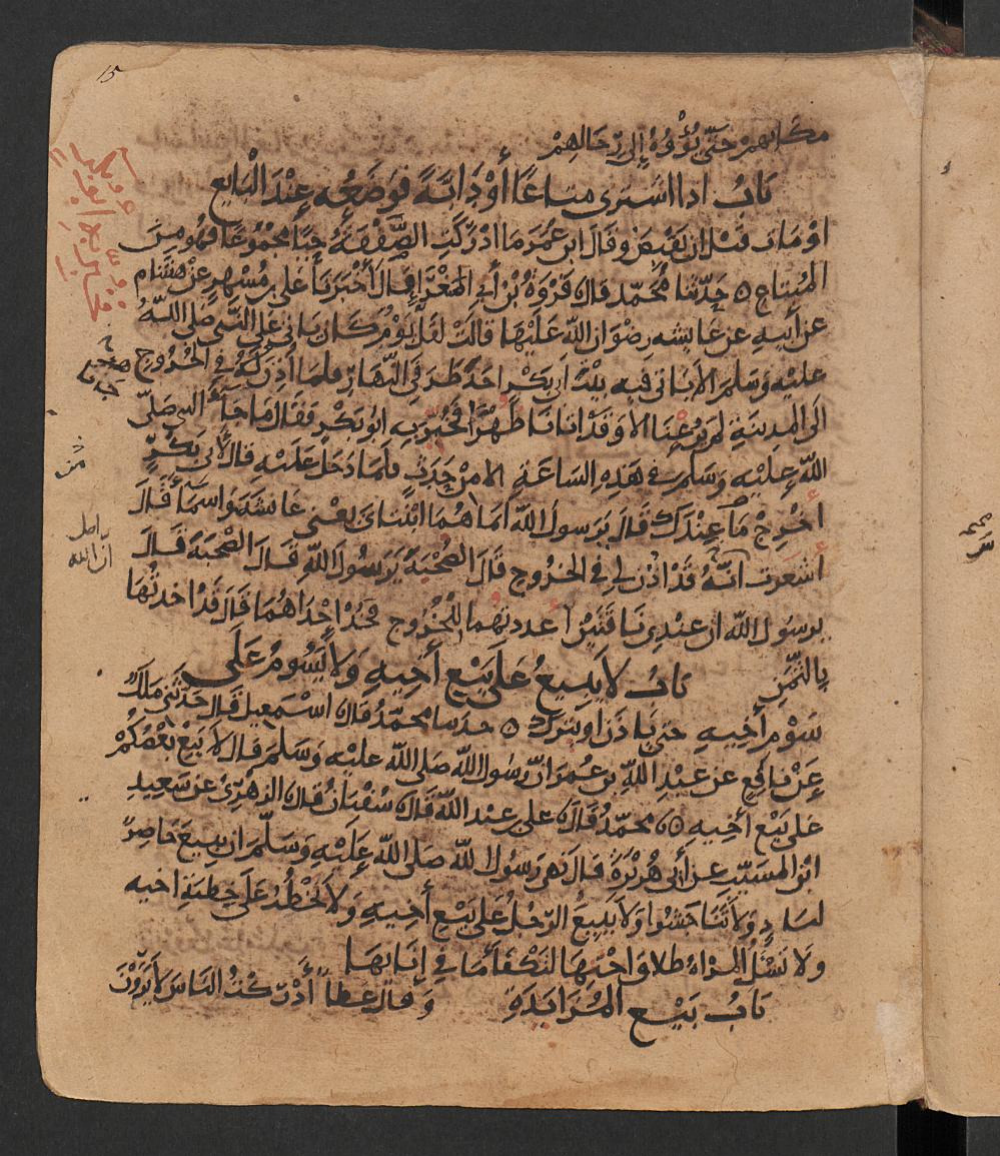 15
مكانهم حتى يؤوه إلى رحالهم
باب اذا اشترى متاعا أو دابة فوضعه عند البايع
او مات قبل ان يقبض وقال ابن عمر ما ادركت الصفقة حيا مجموعا فهو من
المبتاع ه حدثنا محمد قال فروة بن أبي المغرا قال أخبرنا علي بن مسهر عن هشام
عن أبيه عن عايشه رضوان الله عليها قالت لقل يوم كان ياتي على النبي صلى الله
عليه وسلم الا ياتي فيه بيت ابي بكر احد طرفي النهار فلما أذن له في الخروج
الى المدينة لم يرعنا الا وقد اتانا ظهرا فخبر به ابو بكر فقال ما جاء النبي صلى
الله عليه وسلم في هذه الساعة الا من حدث فلما دخل عليه قال لأبي بكر
أخرج ما عندك قال يرسول الله انما هما ابنتاى يعني عائشة واسماء قال
أشعرت أنه قد اذن لي في الخروج قال الصحبة يرسول الله قال الصحبة قال
يرسول الله ان عندي ناقتين أعددتهما للخروج فخذ احداهما قال قد اخذتها
بالثمن باب لا يبيع على بيع أخيه ولا يسوم على
سوم أخيه حتى ياذن او يترك ه حدثنا محمد قال اسمعيل قال حدثني ملك
عن نافع عن عبد الله بن عمر ان رسول الله صلى الله عليه وسلم قال لا يبيع بعضكم
على بيع أخيه ه محمد قال علي بن عبد الله قال سفيان قال الزهري عن سعيد
ابن المسيب عن أبي هريرة قال نهى رسول الله صلى الله عليه وسلم ان يبيع حاضر
لباد ولا تناجشوا ولا يبيع الرجل على بيع أخيه ولا يخطب على خطبة اخيه
ولا تسئل المراة طلاق اختها لتكفأ ما في إنائها
باب بيع المزايدة وقال عطاء أدركت الناس لا يرون
اصل
ان الله
من